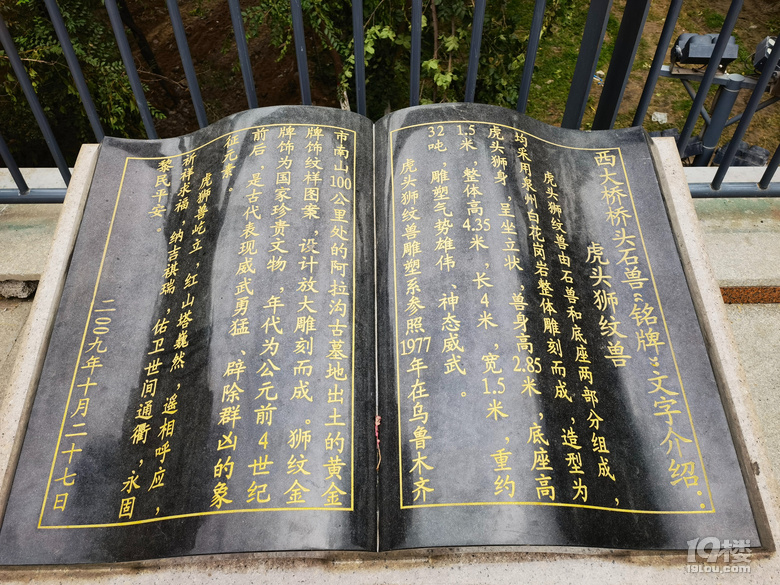 西大桥桥头石兽“铭牌”文字介绍：
虎头狮纹兽
虎头狮纹兽由石兽和底座两部分组成，
均采用泉州白花岗岩整体雕刻而成，造型为
虎头狮身，呈坐立状，兽身高2.85米，底座高
1.5米，整体高4.35米，长4米，宽1.5米，重约
32吨，雕塑气势雄伟、神态威武。
虎头狮纹兽雕塑系参照1977年在乌鲁木齐
市南山100公里处的阿拉沟古墓地出土的黄金
牌饰纹样图案，设计放大雕刻而成。狮纹金
牌饰为国家珍贵文物，年代为公元前4世纪
前后，是古代表现威武勇猛、辟除群凶的象
征元素。
虎狮兽屹立，红山塔巍然，遥相呼应，
祈祥求福，纳吉祺瑞，佑卫世间通衢，永固
黎民平安。
二〇〇九年十月二十七日
19楼
19lou.com